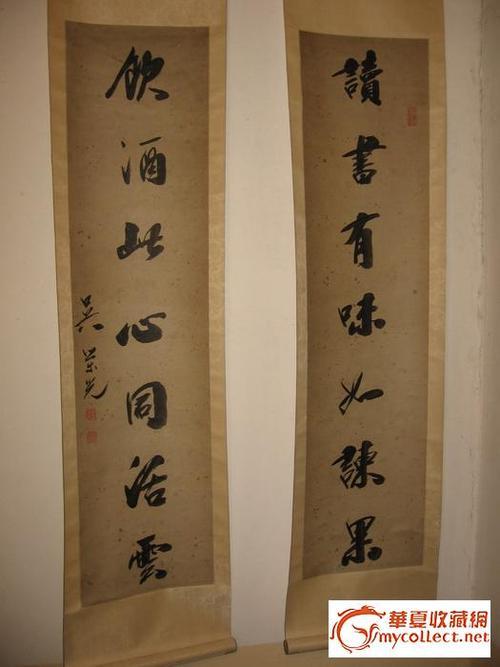 讀書有味如諫果
飲酒此心同活雲
吳榮光
華夏收藏網
mycollect.net